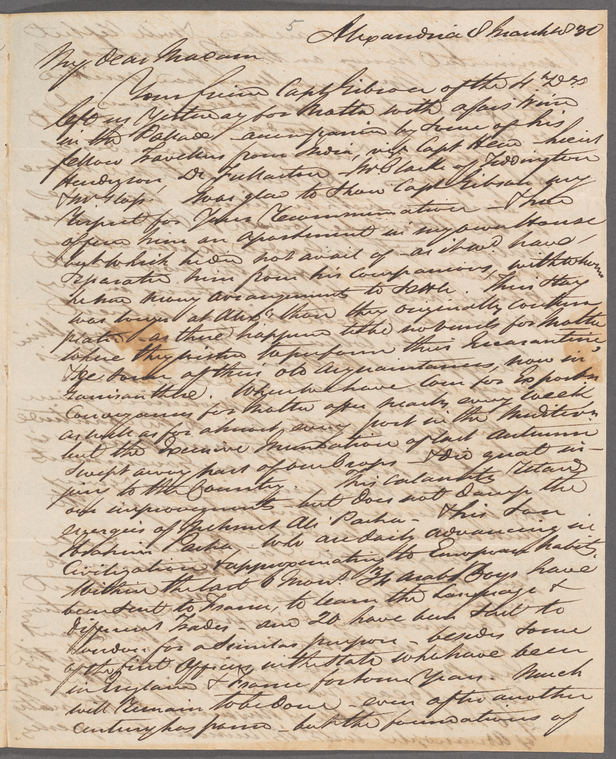 5
Alexandria 8 March 1830
My dear Madam
Your friend Capt Gibson of the 4th
left us Yesterday for Malta with a fair wind
in the Packet - accompanied by some of his
fellow travellers from India, viz Capt
Henderson, Dr Fullarton - Mr Clarke of Teddington
& Mr Hops I was glad to show Capt Gibson my
respect for Your recommendation - I had
offered him an apartment in my own House
but which he did not avail of - as it wd have
separated him from his companions, with whom
he had many arrangements to settle. Their stay
was longer at Alexa than they originally contem
plated - as there happened to be no vessels for Malta
where they wished to perform their Quarantine
& see some of their old acquaintances, now in
Garrison there. When we have Corn for Export
conveyances for Malta offer nearly every week
as well as for almost every port in the Mediterrn
but the excessive Inundation of last Autumn
swept away part of our Crops - & did great in-
jury to the Country. This calamity retards
our improvements but does not damp the
energies of Mehmet Ali Pacha - & his Son
Ibrahim Pacha - who are daily advancing in
Civilization & approximating to European habits
Within the last 6 Months 34 Arab Boys have
been sent to France, to learn the Language &
different Trades - and 20 have been sent to
London for a similar purpose - besides some
of the first Officers in the State who have been
in England & France for some Years. Much
will remain to be done - even after another
century has passed - but the foundations of